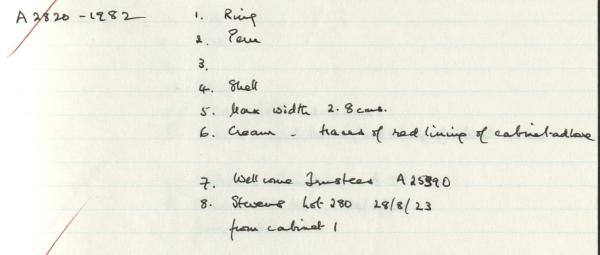 A 2820 - 1982
1. Ring
2. Peru
3.
4. Shell
5. Max width 2.8 cms.
6. Cream - traces of red lining of cabinet adhere
7. Wellcome Trustees A 25390
8. Stevens Lot 280 28/8/23
from cabinet 1